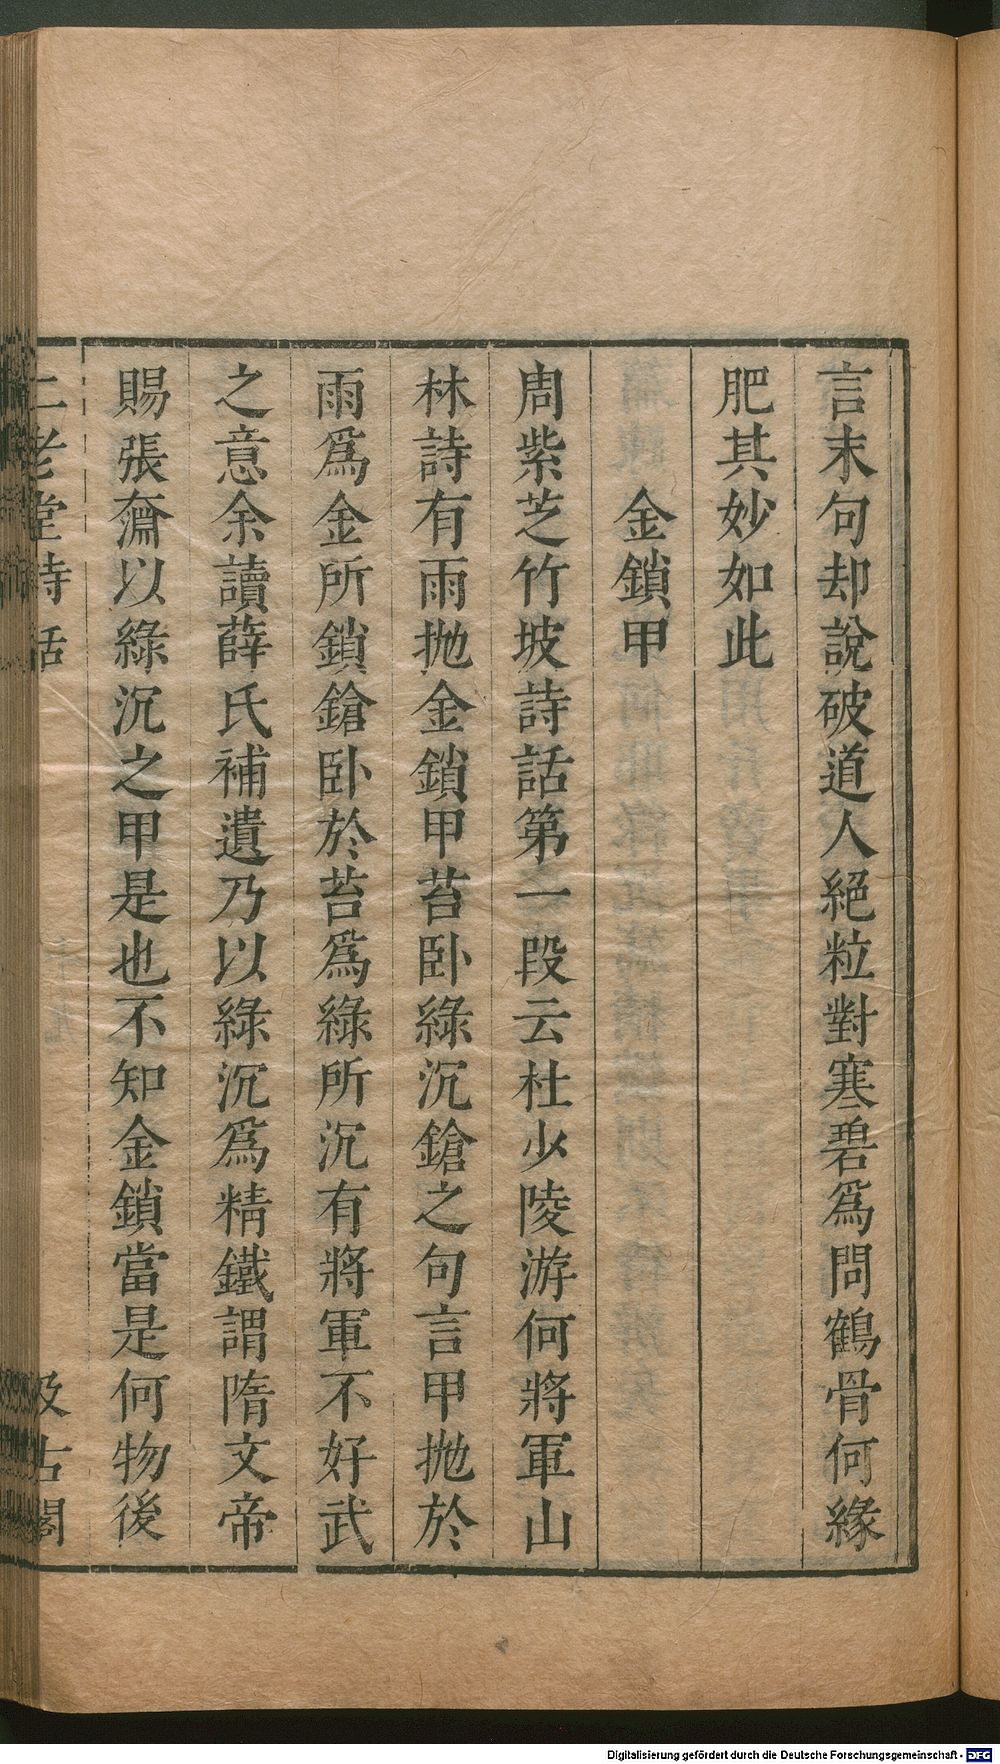 言末句却說破道人絕粒對寒碧爲問鶴骨何緣
肥其妙如此
金鎖甲
周紫芝竹坡詩話第一段云杜少陵游何將軍山
林詩有雨拋金鎖甲苔卧綠沉鎗之句言甲拋於
雨爲金所鎖鎗卧於苔爲綠所沉有將軍不好武
之意余讀薛氏補遺乃以綠沉爲精鐵謂隋文帝
賜張奫以綠沉之甲是也不知金鎖當是何物後
二老堂詩話
汲古閣
Digitalisierung gefördert durch die Deutsche Forschungsgemeinschaft - DFG